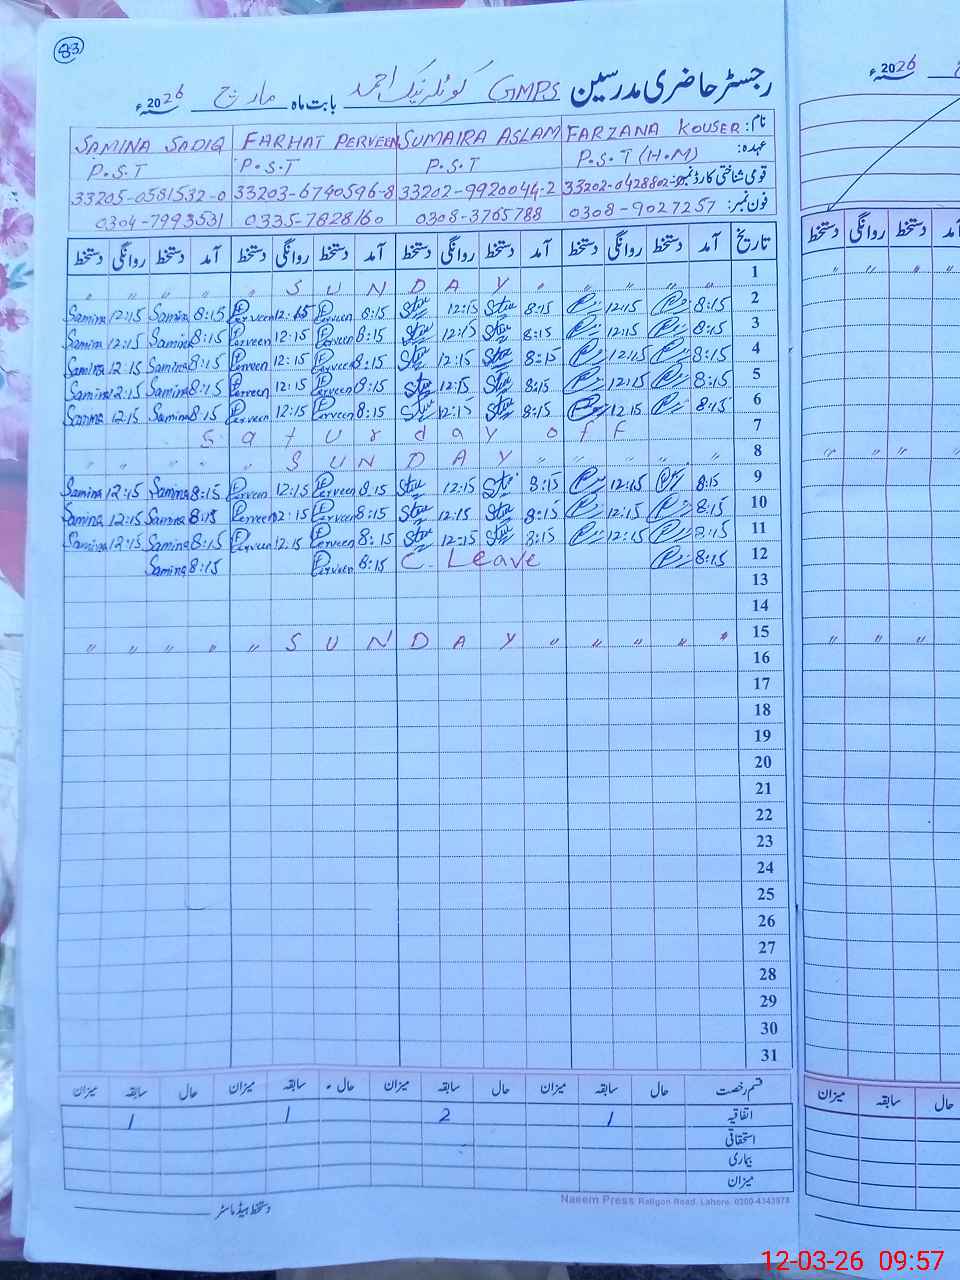 83
رجسٹر حاضری مدرسین GMPS کوٹلہ نیک احمد بابت ماہ مارچ 2026ء
2026ء
نام: FARZANA KOUSER SUMAIRA ASLAM FARHAT PERVEEN SAMINA SADIQ
عہدہ: P.S.T (H.M) P.S.T P.S.T P.S.T
قومی شناختی کارڈ نمبر: 33202-0428802- 33202-9920044-2 33203-6740596-8 33205-0581532-0
فون نمبر: 0308-9027257 0308-3765788 0335-7828160 0304-7993531
تاریخ آمد دستخط روانگی دستخط آمد دستخط روانگی دستخط آمد دستخط روانگی دستخط آمد دستخط روانگی دستخط
آمد دستخط روانگی دستخط
1 " " " " " S U N D A Y " " " "
2 8:15 12:15 8:15 12:15 8:15 Perveen 12:15 Perveen 8:15 Samina 12:15 Samina
3 8:15 12:15 8:15 12:15 8:15 Perveen 12:15 Perveen 8:15 Samina 12:15 Samina
4 8:15 12:15 8:15 12:15 8:15 Perveen 12:15 Perveen 8:15 Samina 12:15 Samina
5 8:15 12:15 8:15 12:15 8:15 Perveen 12:15 Perveen 8:15 Samina 12:15 Samina
6 8:15 12:15 8:15 12:15 8:15 Perveen 12:15 Perveen 8:15 Samina 12:15 Samina
7 Saturday off
8 " " " " " S U N D A Y " " " " "
9 8:15 12:15 8:15 12:15 8:15 Perveen 12:15 Perveen 8:15 Samina 12:15 Samina
10 8:15 12:15 8:15 12:15 8:15 Perveen 12:15 Perveen 8:15 Samina 12:15 Samina
11 8:15 12:15 8:15 12:15 8:15 Perveen 12:15 Perveen 8:15 Samina 12:15 Samina
12 8:15 C. Leave 8:15 Perveen 8:15 Samina
13
14
15 " " " " " S U N D A Y " " " " "
16
17
18
19
20
21
22
23
24
25
26
27
28
29
30
31
قسم رخصت حال سابقہ میزان حال سابقہ میزان حال سابقہ میزان حال سابقہ میزان
حال سابقہ میزان
اتفاقیہ 1 2 1 1
استحقاقی
بیماری
میزان
دستخط ہیڈ ماسٹر
Naeem Press Ratigon Road, Lahore. 0300-4343978
12-03-26 09:57